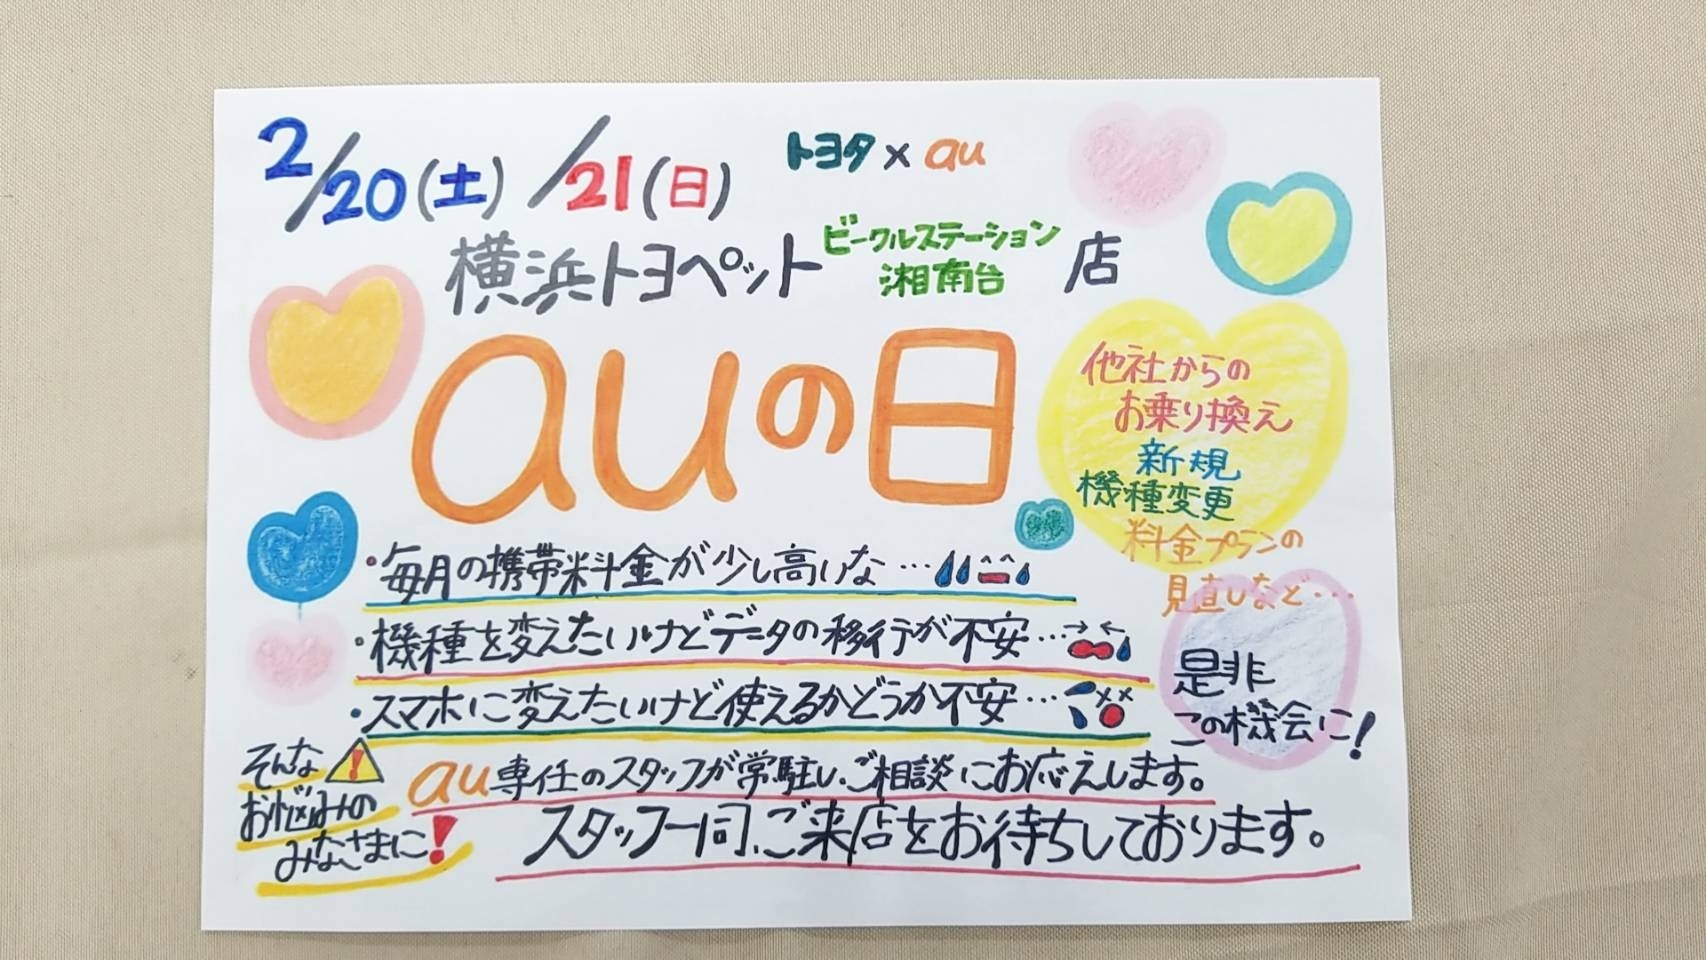 2/20(土) /21(日)
トヨタ×au
横浜トヨペット ビークルステーション湘南台 店
auの日
他社からの
お乗り換え
新規
機種変更
料金プランの
見直しなど…
・毎月の携帯料金が少し高いな…
・機種を変えたいけどデータの移行が不安…
・スマホに変えたいけど使えるかどうか不安…
是非
この機会に!
そんな
お悩みの
みなさまに!
au専任のスタッフが常駐し、ご相談にお応えします。
スタッフ一同、ご来店をお待ちしております。